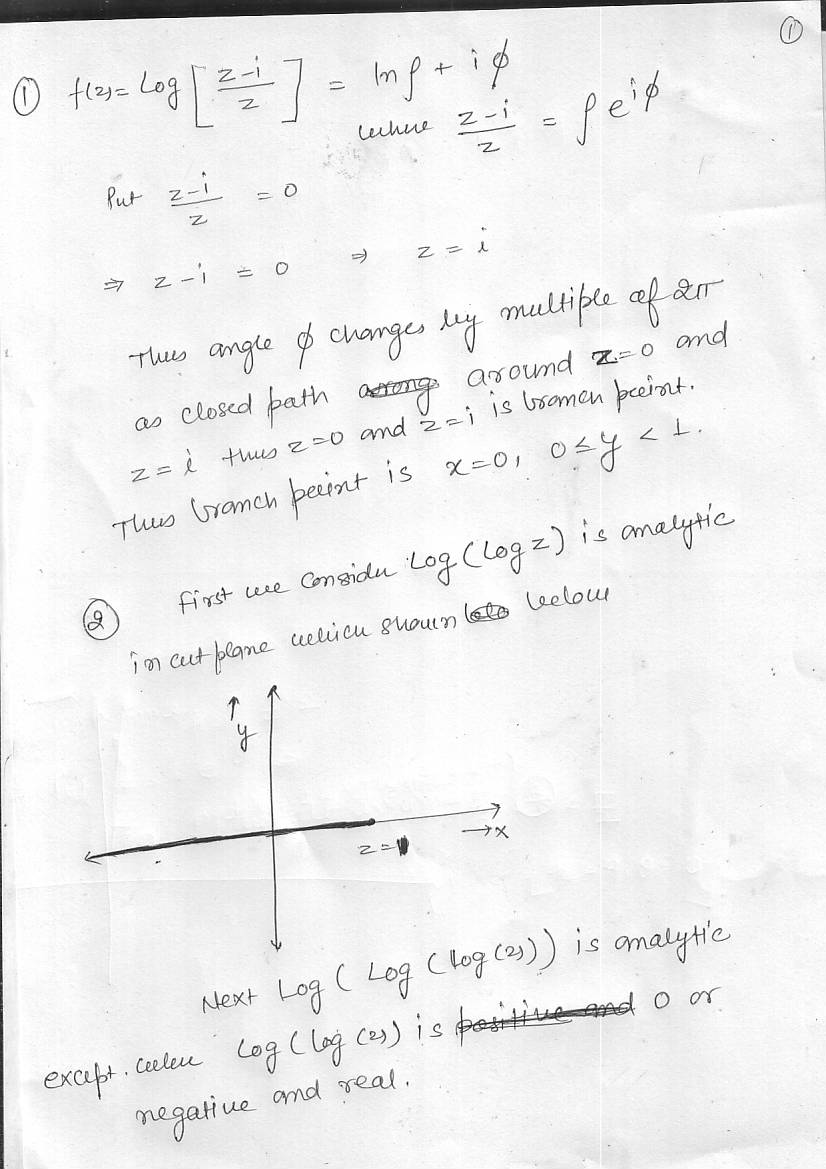 ①
① f(z)= Log [ z-i / z ] = ln ρ + i ϕ
where z-i / z = ρ e^{iϕ}
Put z-i / z = 0
⇒ z-i = 0 ⇒ z = i
Thus angle ϕ changes by multiple of 2π
as closed path around z=0 and
z=i thus z=0 and z=i is branch point.
Thus branch point is x=0, 0≤y<1.
② first we consider Log (Log z) is analytic
in cut plane which shown below
↑
y
z=1
→x
Next Log ( Log ( Log (z))) is analytic
except. when Log ( Log (z)) is 0 or
negative and real.